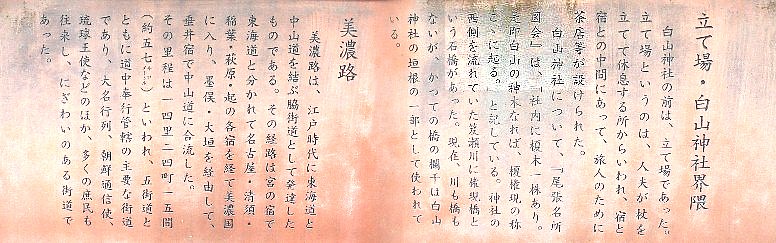 立て場・白山神社界隈
白山神社の前は、立て場であった。
立て場というのは、人夫が杖を
立てて休息する所からいわれ、宿と
宿との中間にあって、旅人のために
茶店等が設けられた。
白山神社について、『尾張名所
図会』は、「社内に榎木一株あり。
是即白山の神木なれば、榎権現の称
こゝに起る。」と記している。神社の
西側を流れていた笈瀬川に権現橋と
いう石橋があった。現在、川も橋も
ないが、かつての橋の欄干は白山
神社の垣根の一部として使われて
いる。
美濃路
美濃路は、江戸時代に東海道と
中山道を結ぶ脇街道として発達した
ものである。その経路は宮の宿で
東海道と分かれて名古屋・清須・
稲葉・萩原・起の各宿を経て美濃国
に入り、墨俣・大垣を経由して、
垂井宿で中山道に合流した。
その里程は一四里二四町一五間
(約五七)といわれ、五街道と
ともに道中奉行管轄の主要な街道
であり、大名行列、朝鮮通信使、
琉球王使などのほか、多くの庶民も
往来し、にぎわいのある街道で
あった。